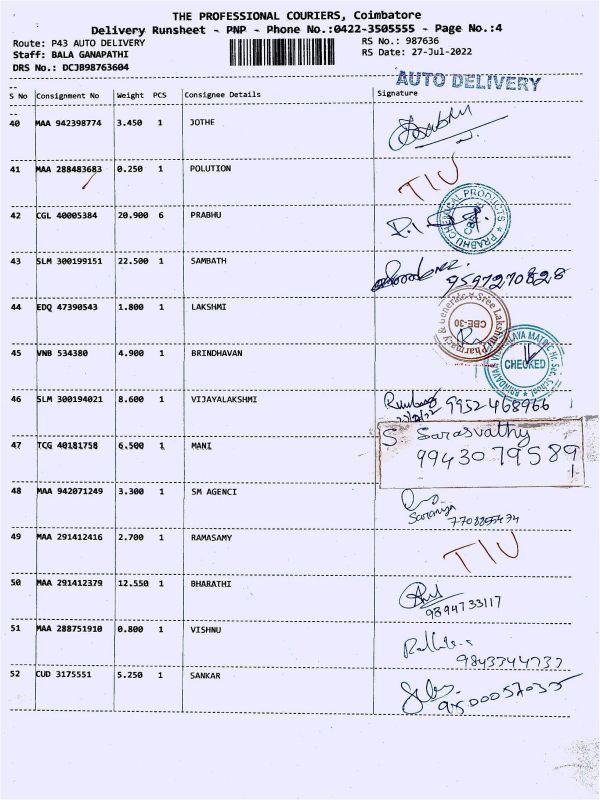 THE PROFESSIONAL COURIERS, Coimbatore
Delivery Runsheet - PNP - Phone No.:0422-3505555 - Page No.:4
Route: P43 AUTO DELIVERY RS No.: 987636
Staff: BALA GANAPATHI RS Date: 27-Jul-2022
DRS No.: DCJB98763604
AUTO DELIVERY
S No Consignment No Weight PCS Consignee Details Signature
40 MAA 942398774 3.450 1 JOTHE
41 MAA 288483683 0.250 1 POLUTION TIU
42 CGL 40005384 20.900 6 PRABHU PRABHU CHEMICAL PRODUCTS
43 SLM 300199151 22.500 1 SAMBATH 9597270828
44 EDQ 47390543 1.800 1 LAKSHMI Sree Lakshmi Pharmacy & Generals CBE-30
45 VNB 534380 4.900 1 BRINDHAVAN CHECKED
46 SLM 300194021 8.600 1 VIJAYALAKSHMI 9952468966
47 TCG 40181758 6.500 1 MANI S. Sarasvathy
9943079589
48 MAA 942071249 3.300 1 SM AGENCI
Saranya
49 MAA 291412416 2.700 1 RAMASAMY TIU
50 MAA 291412379 12.550 1 BHARATHI
9894733117
51 MAA 288751910 0.800 1 VISHNU
52 CUD 3175551 5.250 1 SANKAR